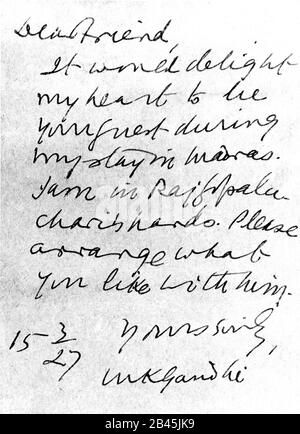 Dear Friend,
It would delight
my heart to be
your guest during
my stay in Madras.
I am in Rajgopala-
chari's hands. Please
arrange what
you like with him.
15 3/27 Yours sincly,
MKGandhi
alamy
Image ID: 2B45JK9
www.alamy.com